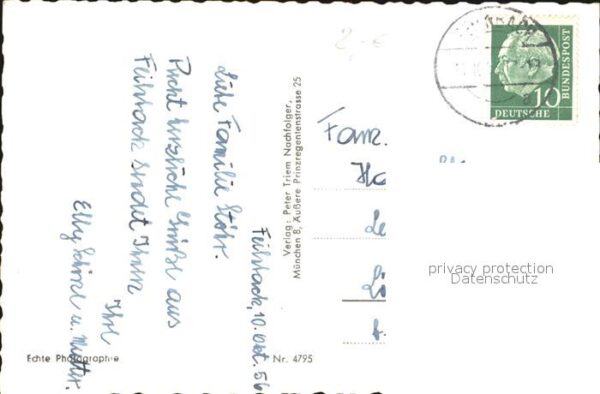 2.-€
Feilnbach, 10. Okt. 56
Liebe Familie Stöhr.
Recht herzliche Grüße aus
Feilnbach sendet Ihnen
Ihre
Elly u. Mutter.
Verlag: Peter Triem Nachfolger,
München 8, Äußere Prinzregentenstrasse 25
Echte Photographie
Nr. 4795
Fam.
10
DEUTSCHE
BUNDESPOST
privacy protection
Datenschutz